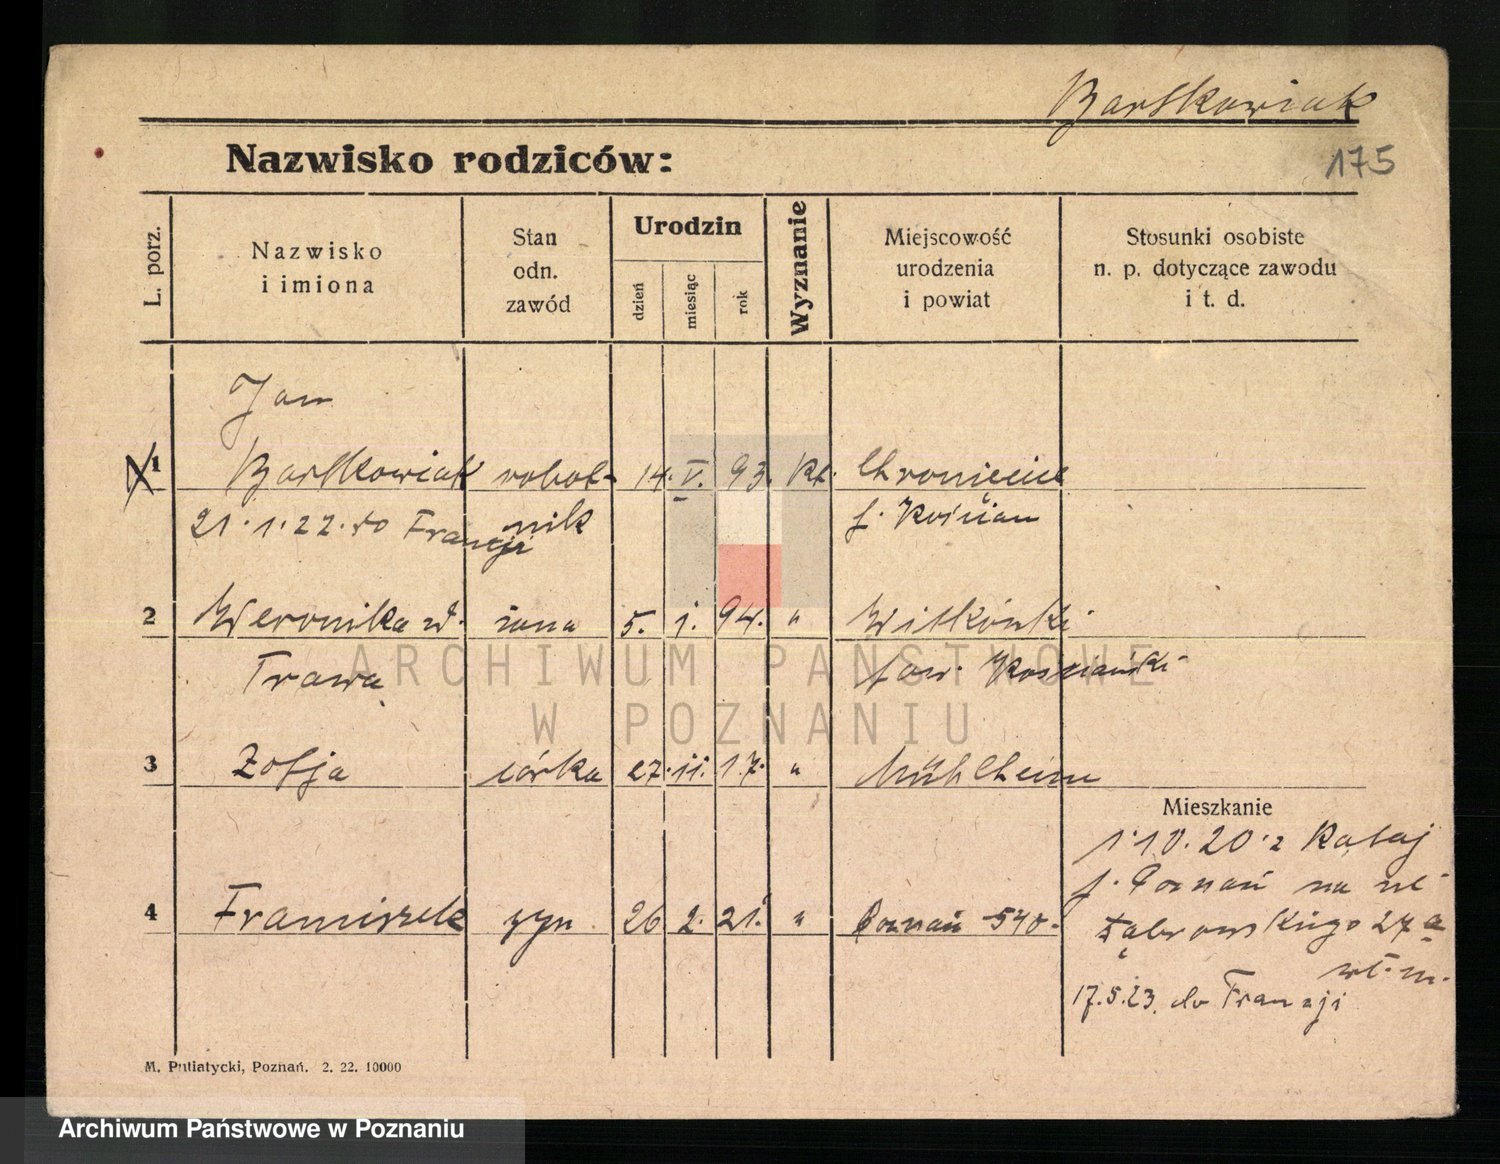 Bartkowiak
175
Nazwisko rodziców:
L. porz.
Nazwisko
i imiona
Stan
odn.
zawód
Urodzin
dzień
miesiąc
rok
Wyznanie
Miejscowość
urodzenia
i powiat
Stosunki osobiste
n. p. dotyczące zawodu
i t. d.
Jan
1 Bartkowiak robot- 14. V. 93. kt.
21.1.22. do Francji nik
p. Kościan
2 Weronika żona 5. 1. 94. " Witkówki
Trawa pow. Kościański
3 Zofja córka 27. 11. 17. " Mühlheim
Mieszkanie
1.10.20. z Rataj
p. Poznań na ul.
Dąbrowskiego 27 a
4 Franciszek syn 26 2. 21. " Poznań 540.
17.5.23. do Francji
M. Putiatycki, Poznań. 2. 22. 10000
ARCHIWUM PAŃSTWOWE
W POZNANIU
Archiwum Państwowe w Poznaniu